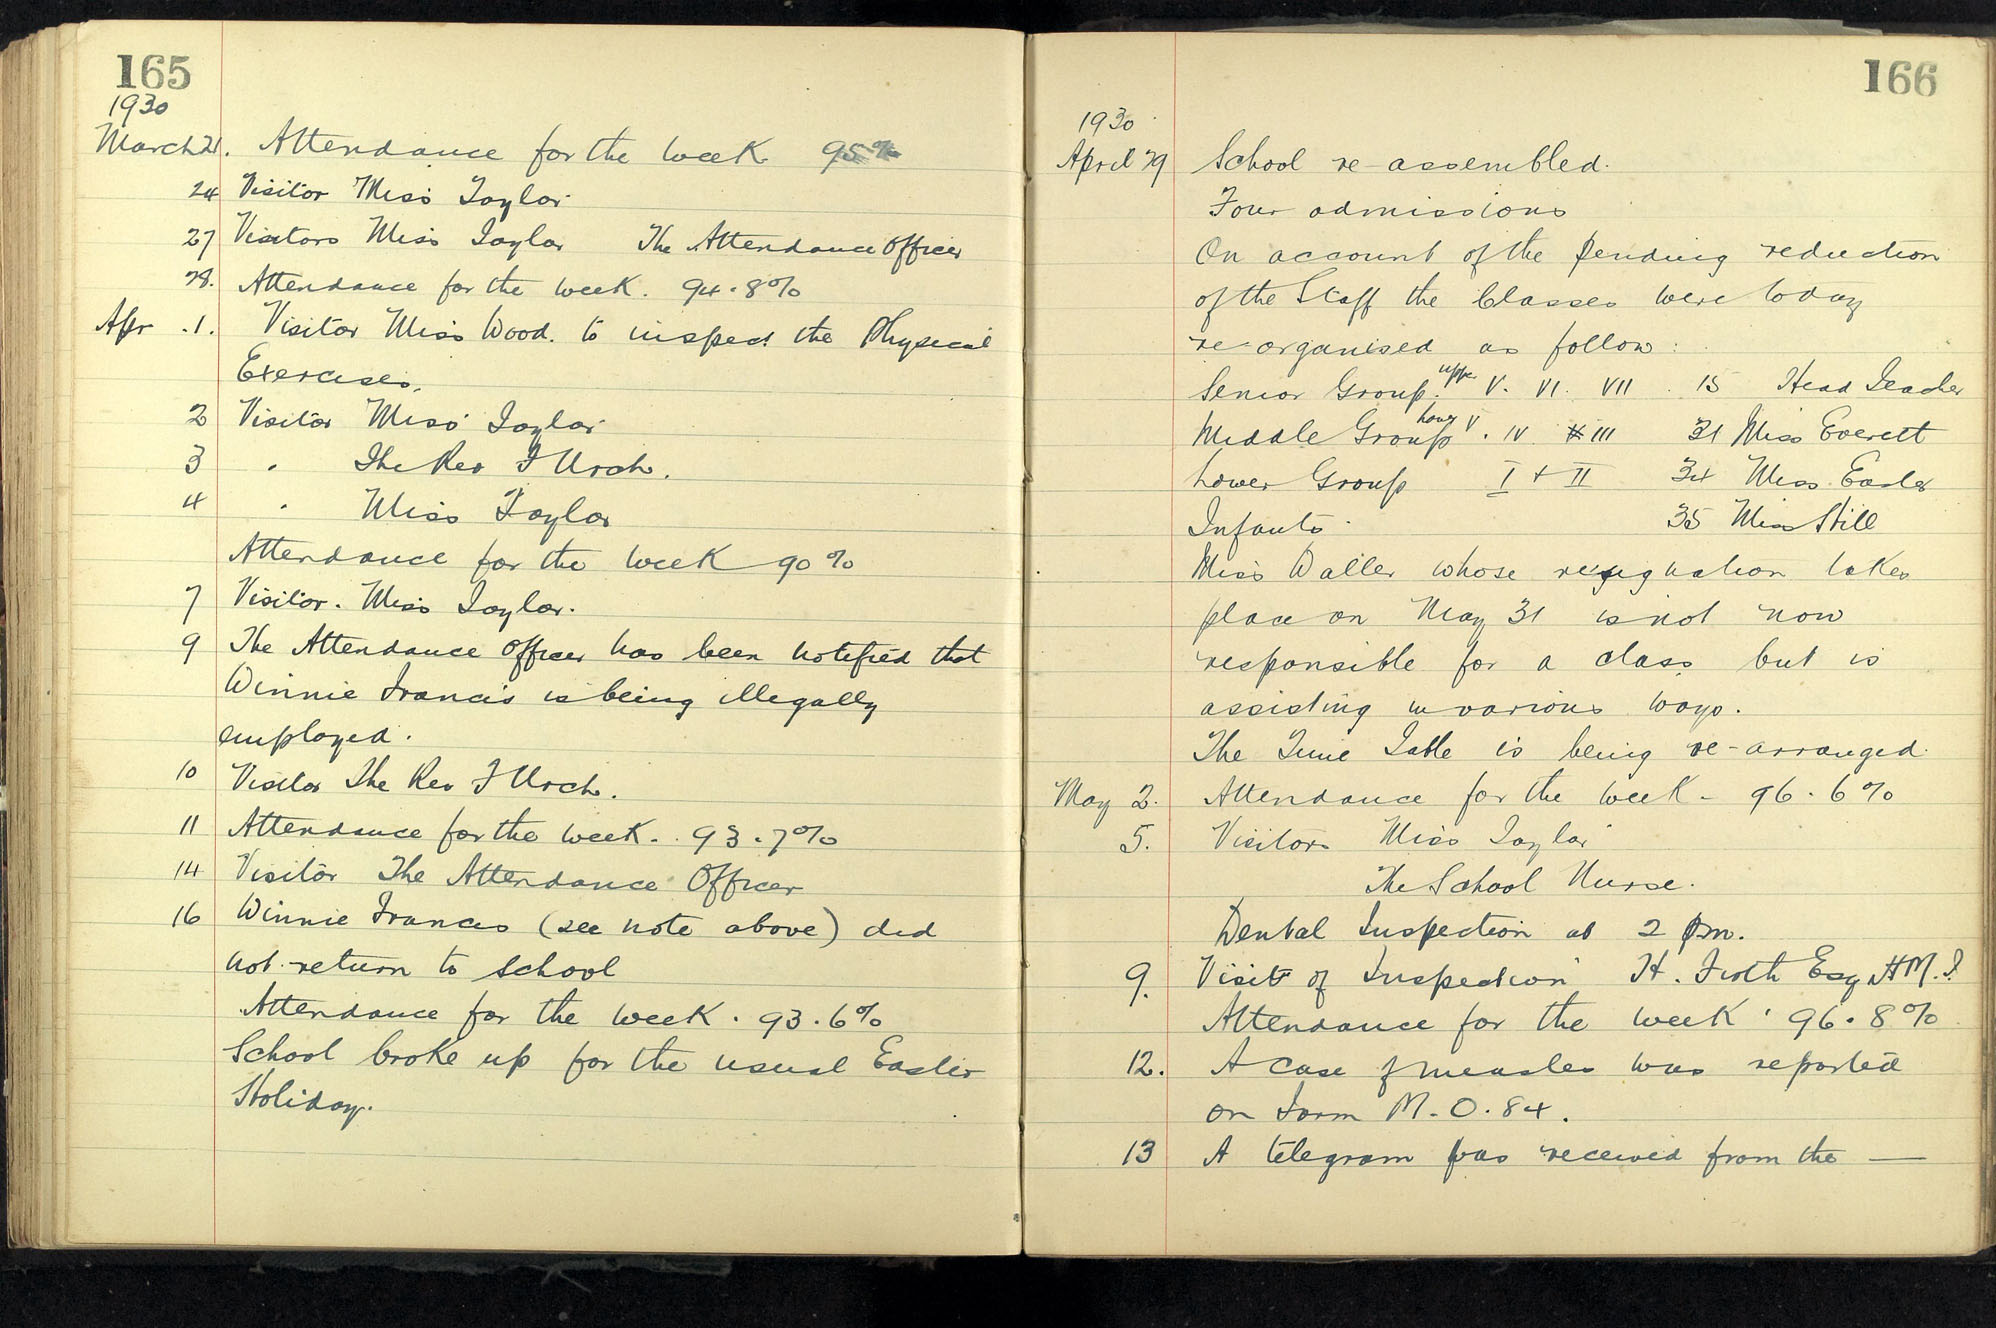 165
1930
March 21. Attendance for the week 95%
24 Visitor Miss Taylor
27 Visitors Miss Taylor The Attendance Officer
28. Attendance for the week. 94.8%
Apr .1. Visitor Miss Wood. to inspect the Physical
Exercises.
2 Visitor Miss Taylor
3 " The Rev F Urch.
4 " Miss Taylor
Attendance for the week 90%
7 Visitor. Miss Taylor.
9 The Attendance Officer has been notified that
Winnie Francis is being illegally
employed.
10 Visitor The Rev F Urch.
11 Attendance for the week. 93.7%
14 Visitor The Attendance Officer
16 Winnie Francis (see note above) did
not return to school
Attendance for the week. 93.6%
School broke up for the usual Easter
Holiday.
166
1930
April 29 School re-assembled.
Four admissions
On account of the pending reduction
of the Staff the Classes were today
re-organised as follow:
Senior Group. upper V. VI. VII. 15 Head Teacher
Middle Group lower V. IV III 31 Miss Everett
Lower Group I + II 34 Miss
Infants 35 Miss Still
Miss Waller whose resignation takes
place on May 31 is not now
responsible for a class but is
assisting in various ways.
The Time Table is being re-arranged.
May 2. Attendance for the week - 96.6%
5. Visitors Miss Taylor
The School Nurse.
Dental Inspection at 2 pm.
9. Visit of Inspection H. Firth Esq H.M.I.
Attendance for the week. 96.8%
12. A case of measles was reported
on Form M.O.84.
13 A telegram was received from the —